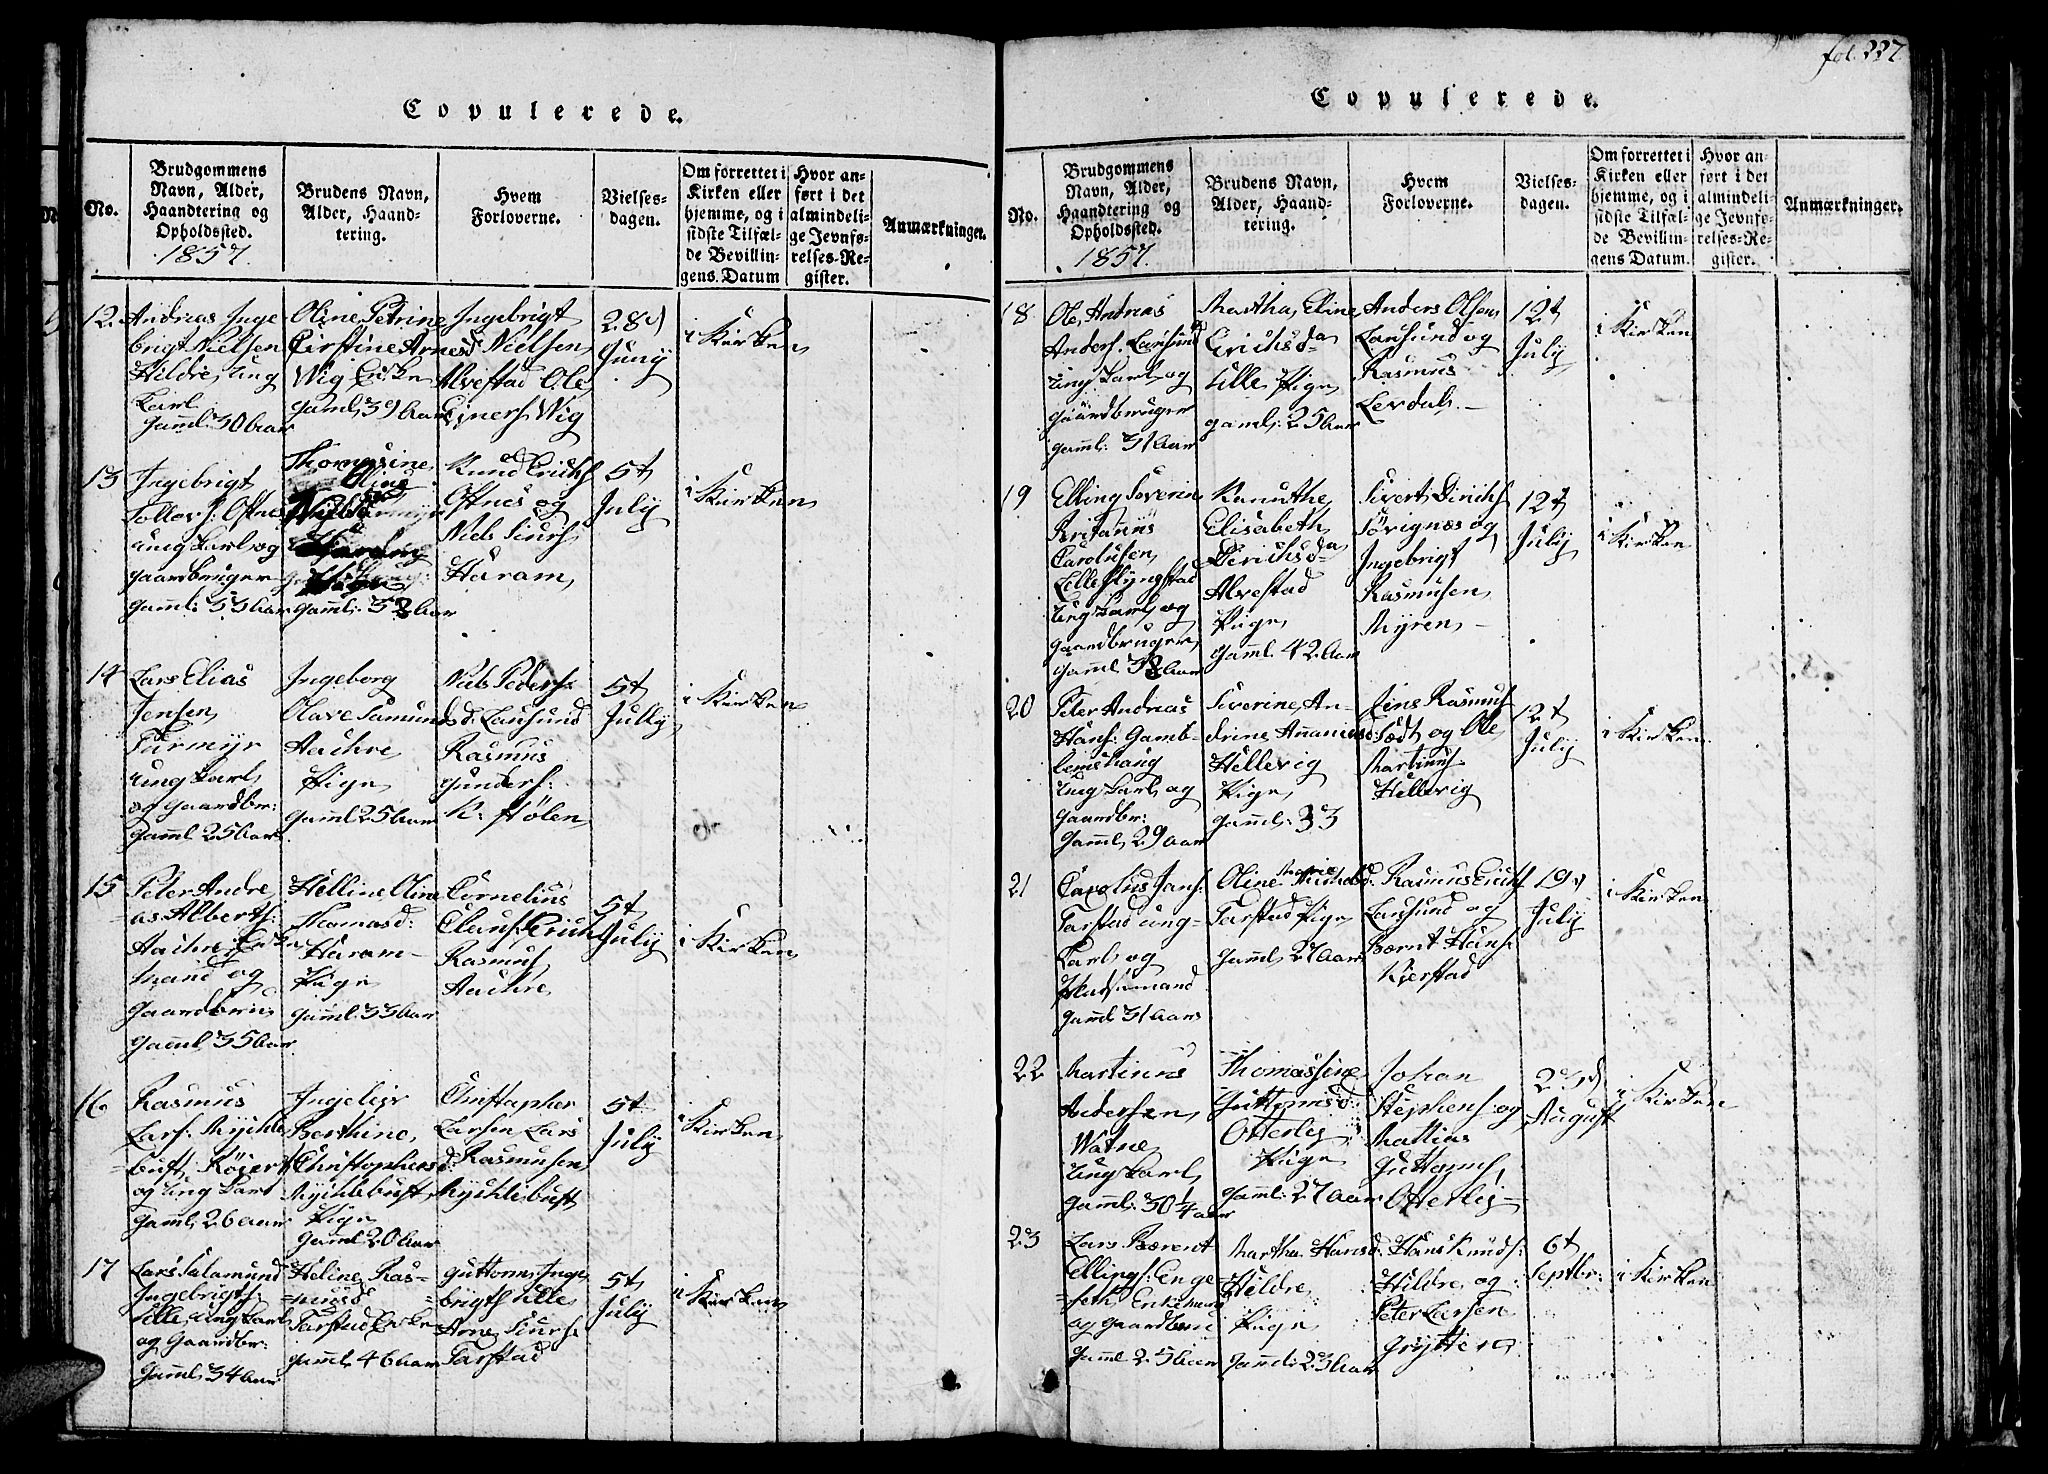 fol. 227
Copulerede.
No.
Brudgommens Navn, Alder, Haandtering og Opholdssted.
1857.
Brudens Navn, Alder, Haandtering.
Hvem Forloverne.
Vielsesdagen.
Om forrettet i Kirken eller hjemme, og i sidste Tilfælde Bevillingens Datum
Hvor anført i det almindelige Jevnførelses-Register.
Anmærkninger.
12.
Andreas Inge
brigt Nielsen
Hildre, ung
Karl
gaml: 30 aar
Oline Petrine
Kirstine Arnesd
Wig Enke
gaml. 39 aar
Ingebrigt
Nielsen
Alvestad Ole
Ejners. Wig
28d
Juny
i Kirken
13
Ingebrigt
ung karl og
gaardbruger
gaml: 33 aar
Thomasine
Oline
gaml: 32 aar
Knud Erichs
Oftnes og
Niels Siurs
Haram
5t
July
i Kirken
14
Lars Elias
Jensen
Farmyr
ung karl
og gaardbr:
gaml 25 aar
Ingeborg
Olave Samunds
Aachre
Pige
gaml 25 aar
Niels Peders:
d. Lausund
Rasmus
Gunders:
K. Hølen
5t
July
i Kirken
15
Peter Andre
as Alberts:
Aachre Enke
mand og
gaardbru
gaml 35 aar
Helline Oline
Thomasd:
Haram
Pige
gaml. 33 aar
Cornelius
Claus. Erich
Rasmus
Aachre
5t
July
i Kirken
16
Rasmus
Lars. Myckle
bust,
og ung karl
gaml, 26 aar
Berthine,
Christophersd
Mycklebust,
Pige
gaml 20 aar
Christopher
Larsen Lars
Rasmusen
Mycklebust
5t
July
i Kirken
17
Lars Salamund
Ingebrigts.
Ulle ung karl
og Gaardbr:
gaml. 34 aar
Heline Ras-
musd
Tarstad Enke
gaml, 46 aar
Guttorm Inge
brigts Ulle
Arne Siurs.
Tarstad
5t
July
i Kirken
Copulerede.
No.
Brudgommens Navn, Alder, Haandtering og Opholdssted.
1857.
Brudens Navn, Alder, Haandtering.
Hvem Forloverne.
Vielsesdagen.
Om forrettet i Kirken eller hjemme, og i sidste Tilfælde Bevillingens Datum.
Hvor anført i det almindelige Jevnførelses-Register.
Anmærkninger.
18
Ole Andreas
Anders. Lausund
ung karl og
gaardbruger
gaml: 31 aar
Martha Eline
Erichsda
Ulle Pige
gaml: 25 aar
Anders Olsen
Lausund og
Rasmus
Lerdal.
12t
July
i Kirken
19
Elling Severin
Carolusen
Lille Flyngstad
ung karl og
gaardbruger
gaml 32 aar
Kanuthe
Elisabeth
Alvestad
Pige
gaml. 42 aar
Sivert Dirichs
Søvignæs og
Ingebrigt
Rasmusen
Myren
12t
July
i Kirken
20
Peter Andreas
Hans. Gamb-
lemshaug
ung karl og
gaardbr:
gaml. 29 aar
Siverine An-
drine Ananiasd
Hellevig
Pige
gaml: 33
Jens Rasmus
Fædt og Ole
Martinus.
Hellevig
12t
July
i Kirken
21
Carolus Jans.
Tarstad ung-
karl og
Huusmand
gaml 31 aars
Oline Marie
Tarstad Pige
gaml, 27 aar
Rasmus Erichs.
Lausund og
Bernt Hans.
Kierstad
19d
July
i Kirken
22
Martinus
Andersen
Watne
ung karl
gaml: 30 1/4 aar
Thomassine
Guttormsd:
Otterlej
Pige
gaml: 27 aar
Johan
Stephens. og
Mattias
Guttorms.
Otterlej
23d
August
i Kirken
23
Lars Berent
Ellings: Enge-
seth Enkemand
og gaardbru
gaml 25 aar
Martha Hansd.
Hildre
Pige
gaml: 23 aar
Hans Knuds:
Hildre og
Peter Larsen
Grytten
6t
Septbr:
i Kirken